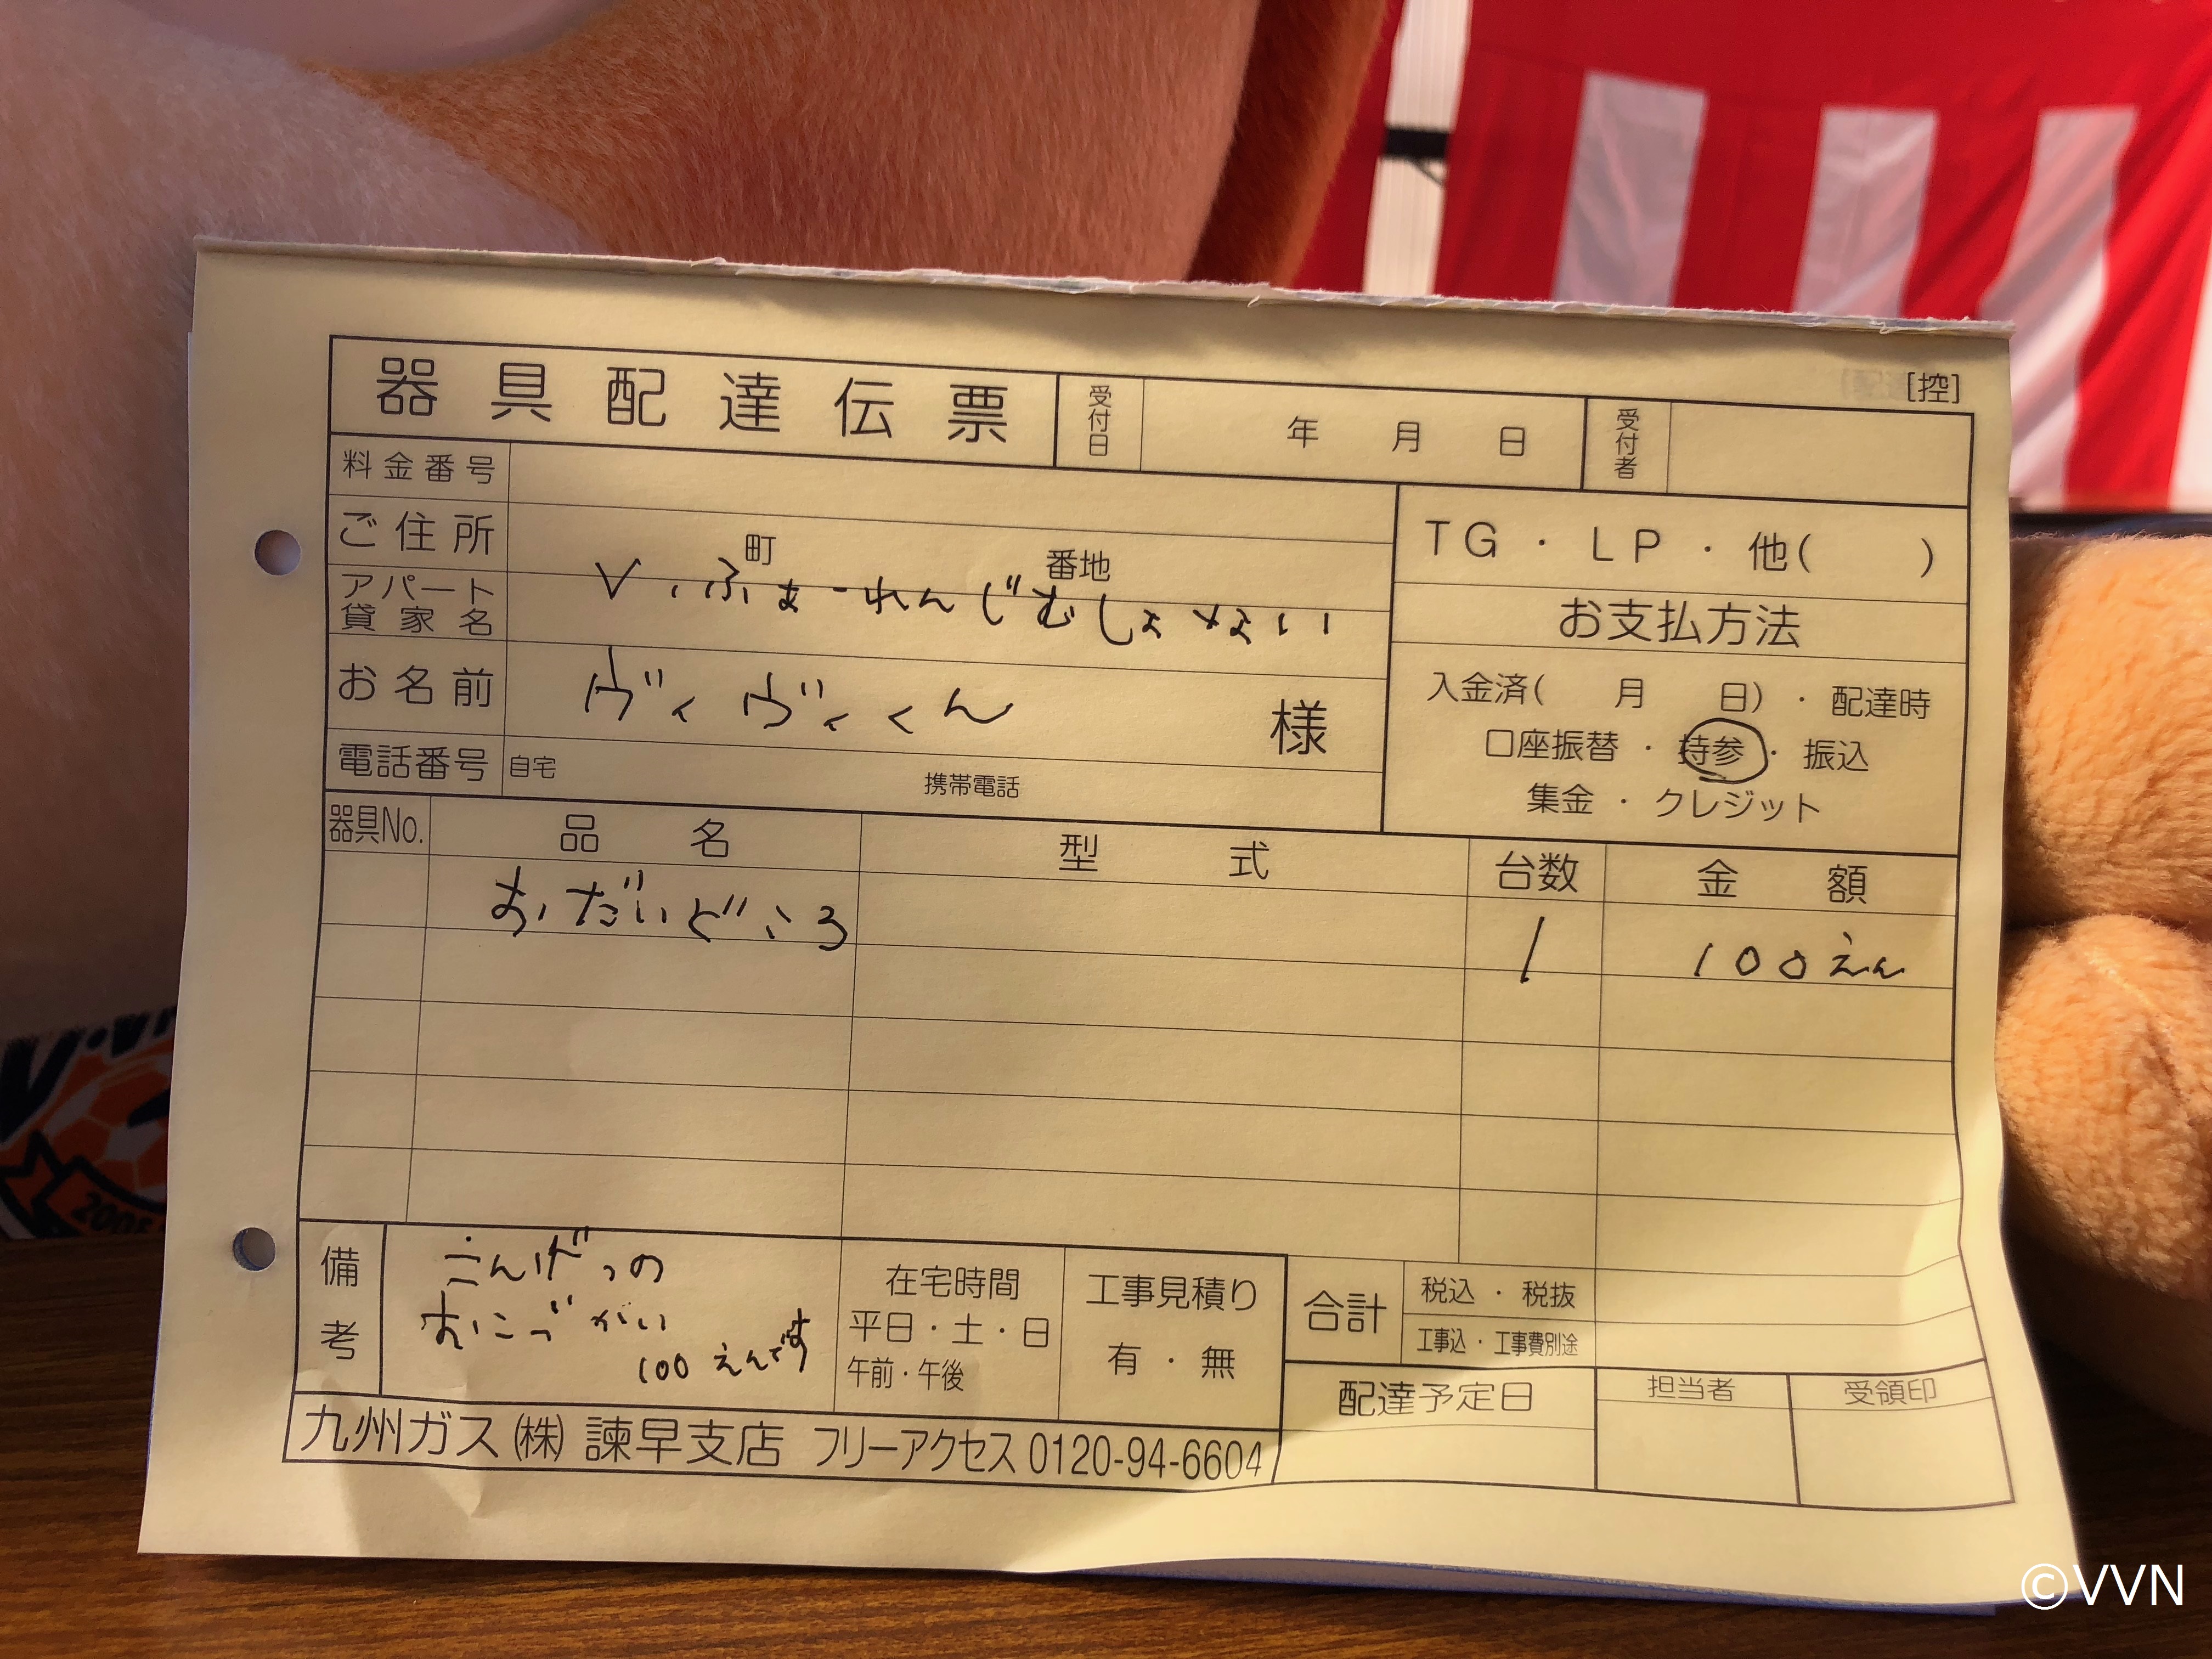 [控]
器具配達伝票 受付日 年 月 日 受付者
料金番号
ご住所 町 番地
TG・LP・他( )
アパート
貸家名
V・ふぁーれんじむしょない
お支払方法
お名前 ヴィヴィくん 様
入金済( 月 日)・配達時
口座振替・持参・振込
集金・クレジット
電話番号 自宅 携帯電話
器具No. 品名 型式 台数 金額
おだいどころ 1 100えん
備考
こんげつの
おこづかい
100えんです
在宅時間
平日・土・日
午前・午後
工事見積り
有・無
合計 税込・税抜
工事込・工事費別途
配達予定日 担当者 受領印
九州ガス㈱諫早支店 フリーアクセス0120-94-6604
V・V
2005
©VVN